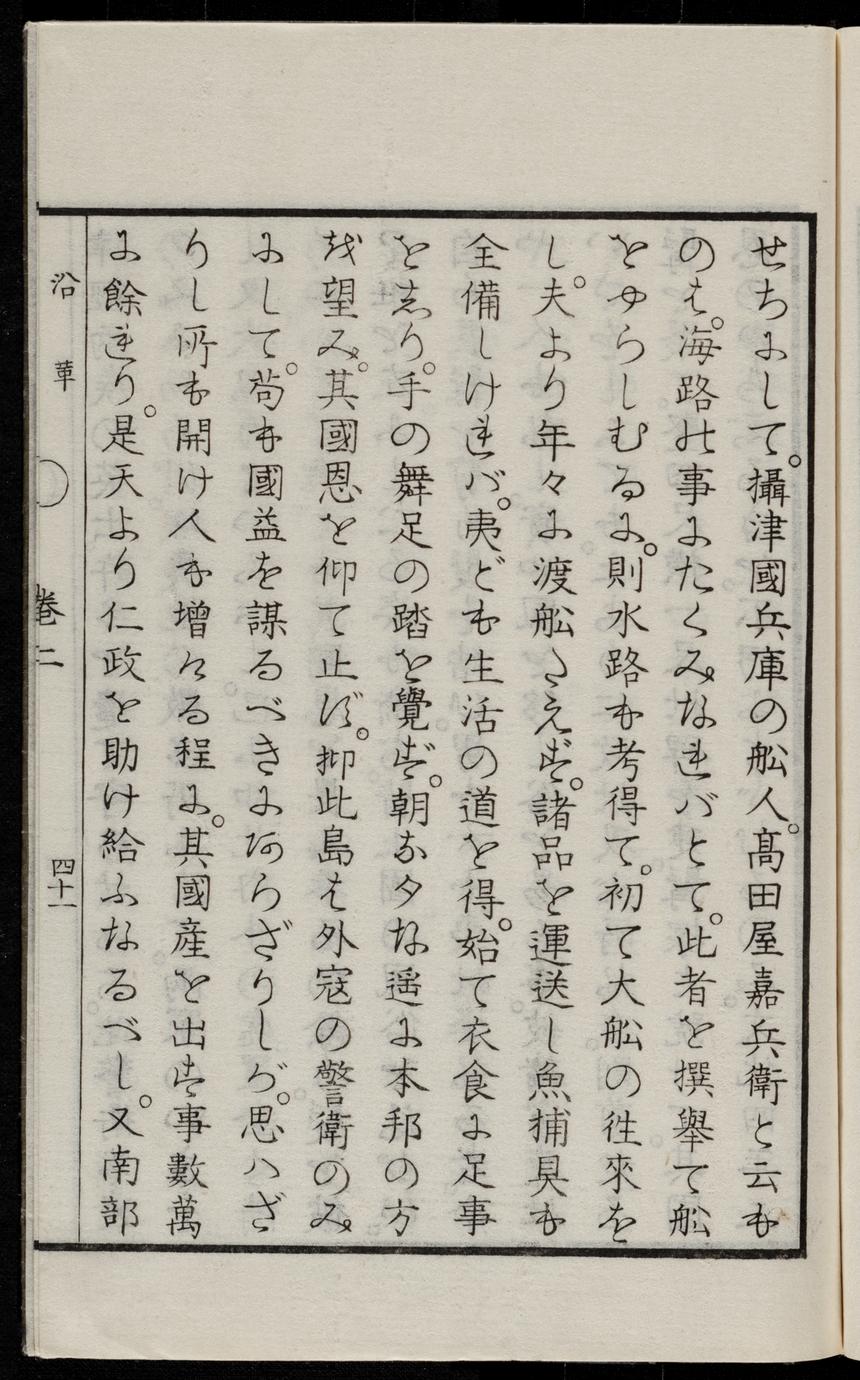 せちにして。攝津國兵庫の舩人。髙田屋嘉兵衛と云も
のは。海路の事にたくみなれバとて。此者を撰舉て舩
をやらしむるに。則水路も考得て。初て大舩の徃來を
し。夫より年々に渡舩たえず。諸品を運送し魚捕具も
全備しけれバ。夷ども生活の道を得。始て衣食に足事
をしり。手の舞足の踏を覺ず。朝な夕な遥に本邦の方
を望み。其國恩を仰て止ず。抑此島は外冦の警衛のみ
にして。苟も國益を謀るべきにあらざりしが。思ハざ
りし所も開け人も増れる程に。其國産を出す事數萬
に餘れり。是天より仁政を助け給ふなるべし。又南部
沿革
巻二
四十一